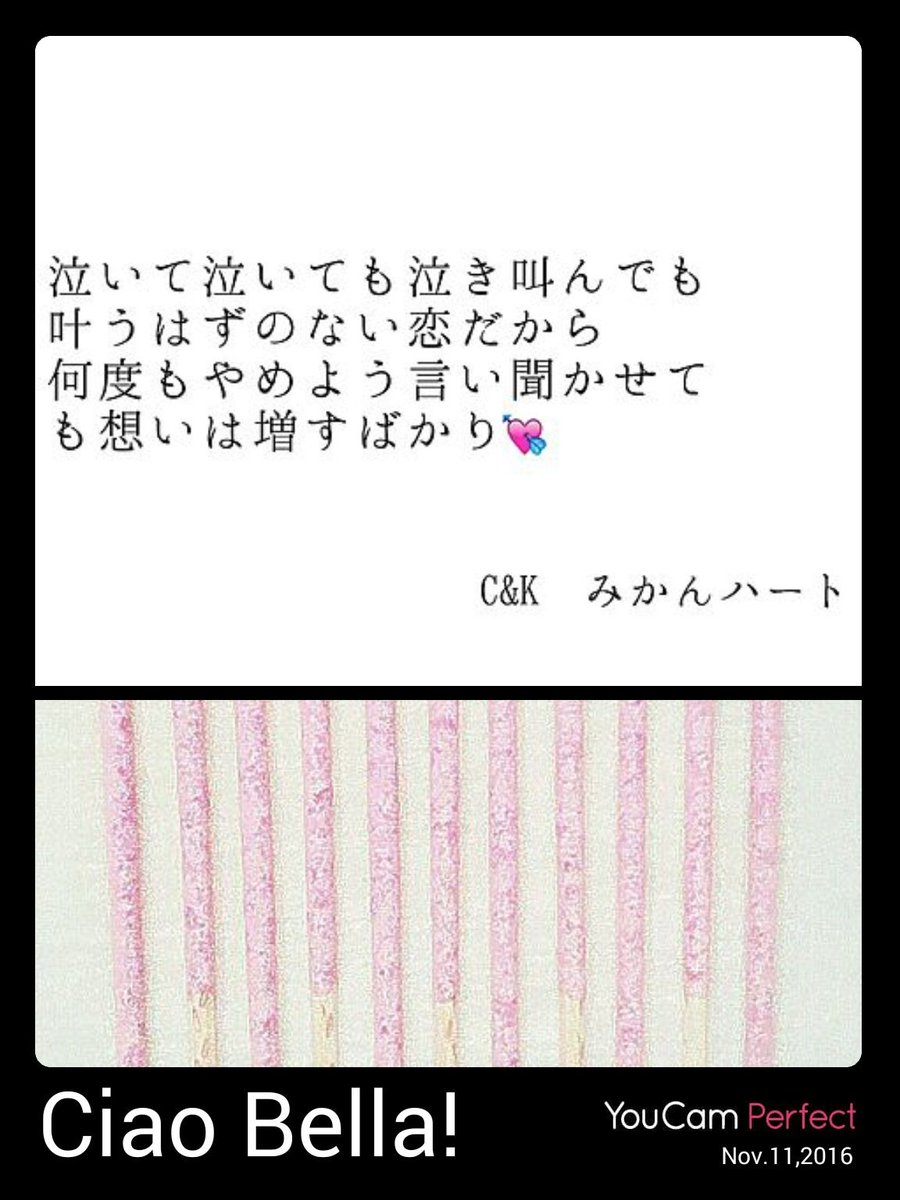 泣いて泣いても泣き叫んでも
叶うはずのない恋だから
何度もやめよう言い聞かせて
も想いは増すばかり💘
C&K　みかんハート
Ciao Bella!
YouCam Perfect
Nov.11,2016